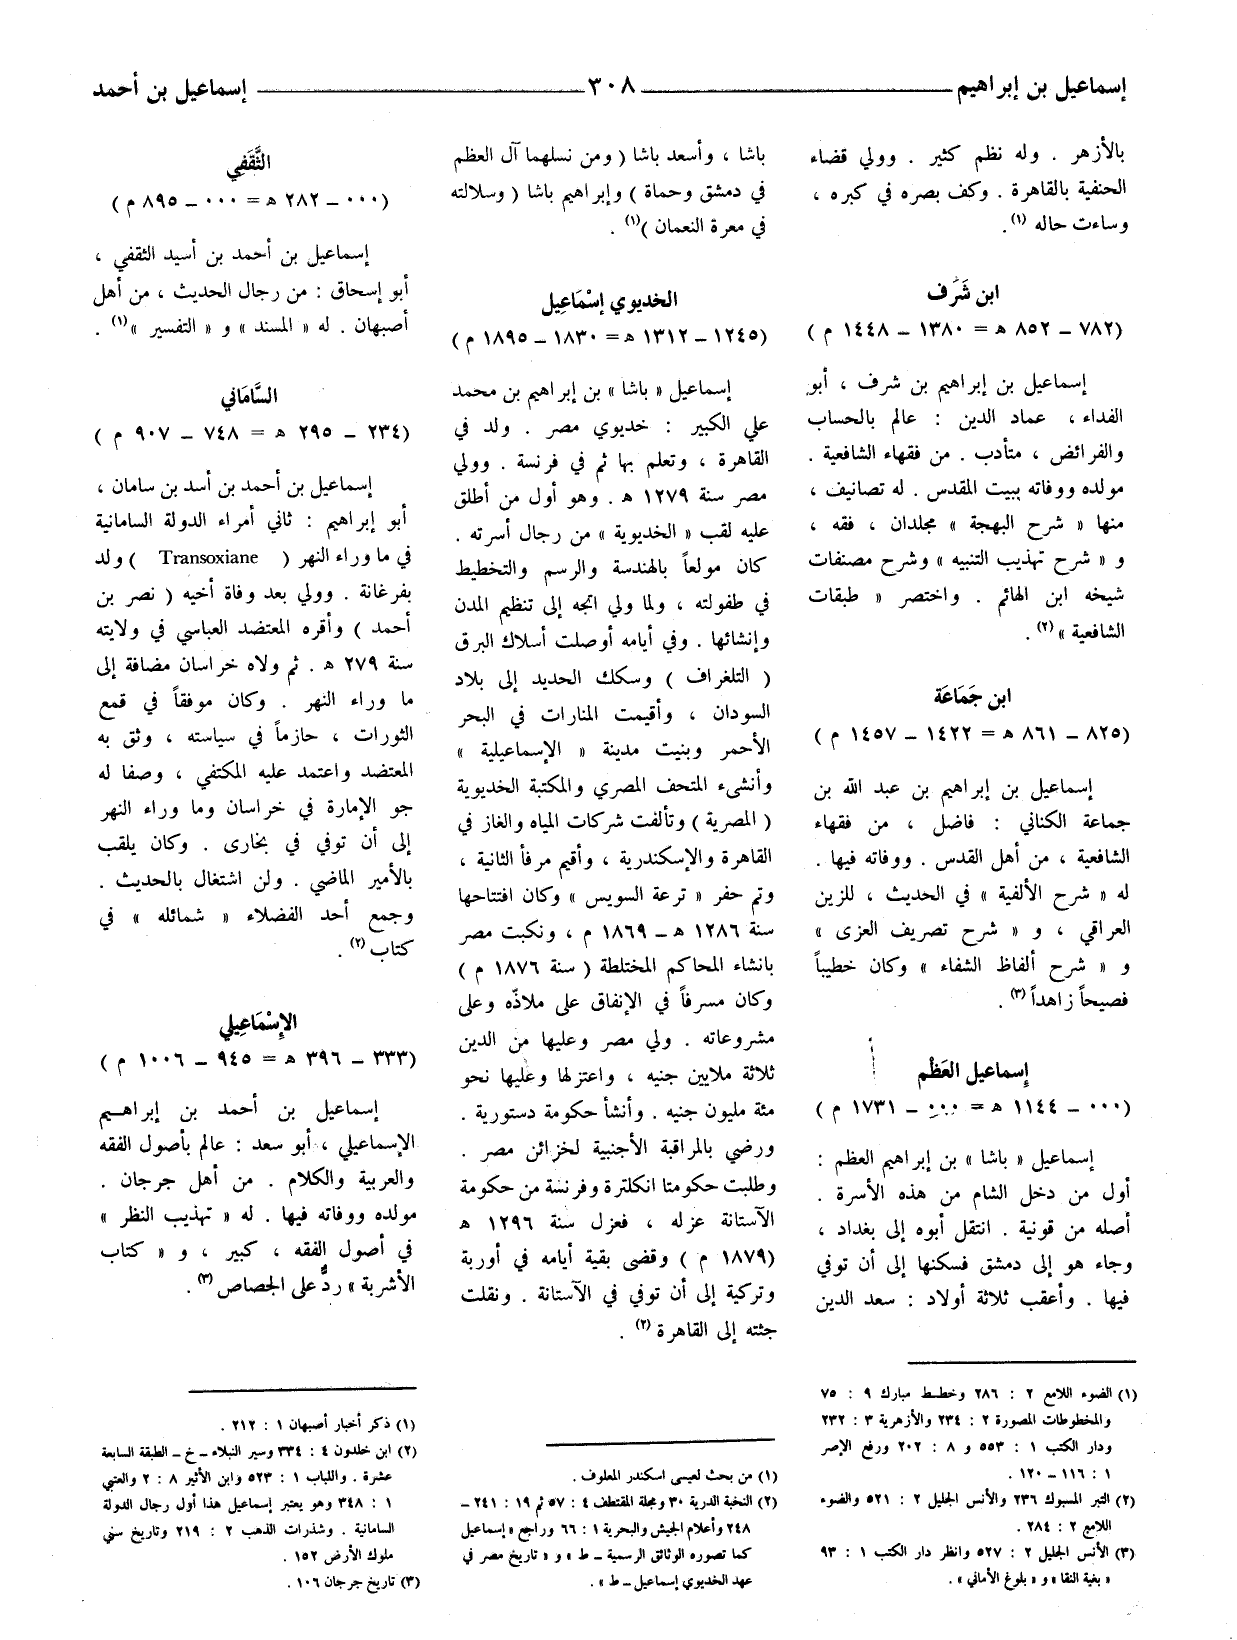 إسماعيل بن إبراهيم ٣٠٨ إسماعيل بن أحمد
بالأزهر . وله نظم كثير . وولي قضاء
الحنفية بالقاهرة . وكف بصره في كبره ،
وساءت حاله (١).
ابن شَرَف
(٧٨٢ – ٨٥٢ هـ = ١٣٨٠ – ١٤٤٨ م )
إسماعيل بن إبراهيم بن شرف ، أبو
الفداء ، عماد الدين : عالم بالحساب
والفرائض ، متأدب . من فقهاء الشافعية .
مولده ووفاته ببيت المقدس . له تصانيف ،
منها « شرح البهجة » مجلدان ، فقه ،
و « شرح تهذيب التنبيه » وشرح مصنفات
شيخه ابن الهائم . واختصر « طبقات
الشافعية » (٢).
ابن جَمَاعَة
(٨٢٥ – ٨٦١ هـ = ١٤٢٢ – ١٤٥٧ م )
إسماعيل بن إبراهيم بن عبد الله بن
جماعة الكناني : فاضل ، من فقهاء
الشافعية ، من أهل القدس . ووفاته فيها .
له « شرح الألفية » في الحديث ، للزين
العراقي ، و « شرح تصريف العزى »
و « شرح ألفاظ الشفاء » وكان خطيباً
فصيحاً زاهداً (٣).
إسماعيل العَظْم
(٠٠٠ – ١١٤٤ هـ = ٠٠٠ – ١٧٣١ م )
إسماعيل « باشا » بن إبراهيم العظم :
أول من دخل الشام من هذه الأسرة .
أصله من قونية . انتقل أبوه إلى بغداد ،
وجاء هو إلى دمشق فسكنها إلى أن توفي
فيها . وأعقب ثلاثة أولاد : سعد الدين
(١) الضوء اللامع ٢ : ٢٨٦ وخطط مبارك ٩ : ٧٥
والمخطوطات المصورة ٢ : ٢٣٤ والأزهرية ٣ : ٢٣٢
ودار الكتب ١ : ٥٥٣ و ٨ : ٢٠٢ ورفع الإصر
١ : ١١٦ – ١٢٠ .
(٢) التبر المسبوك ٢٣٦ والأنس الجليل ٢ : ٥٢١ والضوء
اللامع ٢ : ٢٨٤ .
(٣) الأنس الجليل ٢ : ٥٢٧ وانظر دار الكتب ١ : ٩٣
« بغية النقا » و « بلوغ الأماني » .
باشا ، وأسعد باشا ( ومن نسلهما آل العظم
في دمشق وحماة ) وإبراهيم باشا ( وسلالته
في معرة النعمان )(١) .
الخديوي إسْمَاعِيل
(١٢٤٥ – ١٣١٢ هـ = ١٨٣٠ – ١٨٩٥ م )
إسماعيل « باشا » بن إبراهيم بن محمد
علي الكبير : خديوي مصر . ولد في
القاهرة ، وتعلم بها ثم في فرنسة . وولي
مصر سنة ١٢٧٩ هـ . وهو أول من أطلق
عليه لقب « الخديوية » من رجال أسرته .
كان مولعاً بالهندسة والرسم والتخطيط
في طفولته ، ولما ولي اتجه إلى تنظيم المدن
وإنشائها . وفي أيامه أوصلت أسلاك البرق
( التلغراف ) وسكك الحديد إلى بلاد
السودان ، وأقيمت المنارات في البحر
الأحمر وبنيت مدينة « الإسماعيلية »
وأنشىء المتحف المصري والمكتبة الخديوية
( المصرية ) وتألفت شركات المياه والغاز في
القاهرة والإسكندرية ، وأقيم مرفأ الثانية ،
وتم حفر « ترعة السويس » وكان افتتاحها
سنة ١٢٨٦ هـ – ١٨٦٩ م ، ونكبت مصر
بانشاء المحاكم المختلطة ( سنة ١٨٧٦ م )
وكان مسرفاً في الإنفاق على ملاذّه وعلى
مشروعاته . ولي مصر وعليها من الدين
ثلاثة ملايين جنيه ، واعتزلها وعليها نحو
مئة مليون جنيه . وأنشأ حكومة دستورية .
ورضي بالمراقبة الأجنبية لخزائن مصر .
وطلبت حكومتا انكلترة وفرنسة من حكومة
الآستانة عزله ، فعزل سنة ١٢٩٦ هـ
(١٨٧٩ م ) وقضى بقية أيامه في أوربة
وتركية إلى أن توفي في الآستانة . ونقلت
جثته إلى القاهرة (٢) .
(١) من بحث لعيسى اسكندر المعلوف .
(٢) النخبة الدرية ٣٠ ومجلة المقتطف ٤ : ٥٧ ثم ١٩ : ٢٤١ –
٢٤٨ وأعلام الجيش والبحرية ١ : ٦٦ وراجع « إسماعيل
كما تصوره الوثائق الرسمية – ط » و « تاريخ مصر في
عهد الخديوي إسماعيل – ط » .
الثَّقَفِي
(٠٠٠ – ٢٨٢ هـ = ٠٠٠ – ٨٩٥ م )
إسماعيل بن أحمد بن أسيد الثقفي ،
أبو إسحاق : من رجال الحديث ، من أهل
أصبهان . له « المسند » و « التفسير »(١) .
السَّامَاني
(٢٣٤ – ٢٩٥ هـ = ٧٤٨ – ٩٠٧ م )
إسماعيل بن أحمد بن أسد بن سامان ،
أبو إبراهيم : ثاني أمراء الدولة السامانية
في ما وراء النهر ( Transoxiane ) ولد
بفرغانة . وولي بعد وفاة أخيه ( نصر بن
أحمد ) وأقره المعتضد العباسي في ولايته
سنة ٢٧٩ هـ . ثم ولاه خراسان مضافة إلى
ما وراء النهر . وكان موفقاً في قمع
الثورات ، حازماً في سياسته ، وثق به
المعتضد واعتمد عليه المكتفي ، وصفا له
جو الإمارة في خراسان وما وراء النهر
إلى أن توفي في بخارى . وكان يلقب
بالأمير الماضي . ولن اشتغال بالحديث .
وجمع أحد الفضلاء « شمائله » في
كتاب (٢).
الإسْمَاعِيلي
(٣٣٣ – ٣٩٦ هـ = ٩٤٥ – ١٠٠٦ م )
إسماعيل بن أحمد بن إبراهيم
الإسماعيلي ، أبو سعد : عالم بأصول الفقه
والعربية والكلام . من أهل جرجان .
مولده ووفاته فيها . له « تهذيب النظر »
في أصول الفقه ، كبير ، و « كتاب
الأشربة » ردٌّ على الجصاص (٣) .
(١) ذكر أخبار أصبهان ١ : ٢١٢ .
(٢) ابن خلدون ٤ : ٣٣٤ وسير النبلاء – خ – الطبقة السابعة
عشرة . واللباب ١ : ٥٢٣ وابن الأثير ٨ : ٢ والعتبي
١ : ٣٤٨ وهو يعتبر إسماعيل هذا أول رجال الدولة
السامانية . وشذرات الذهب ٢ : ٢١٩ وتاريخ سني
ملوك الأرض ١٥٢ .
(٣) تاريخ جرجان ١٠٦ .